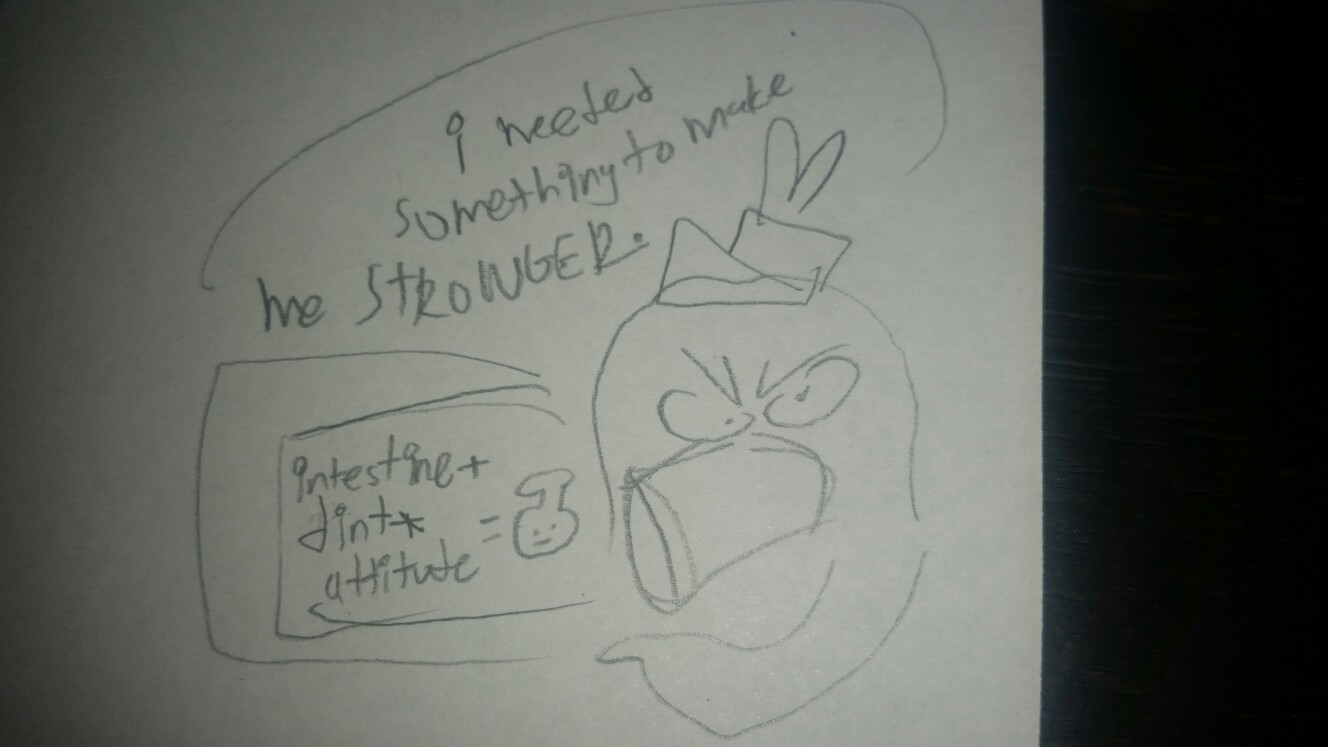 i needed
something to make
me STRONGER.
intestine +
dint*
attitude =